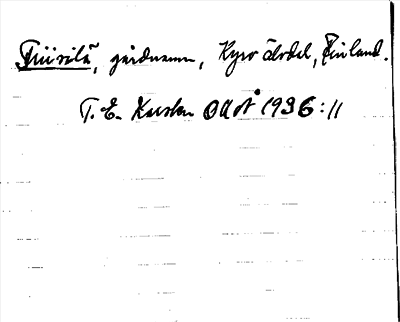 Tiisilä, gårdnamn, Kyro älvdal, Finland.
T. E. Karsten OUÅ 1936:11